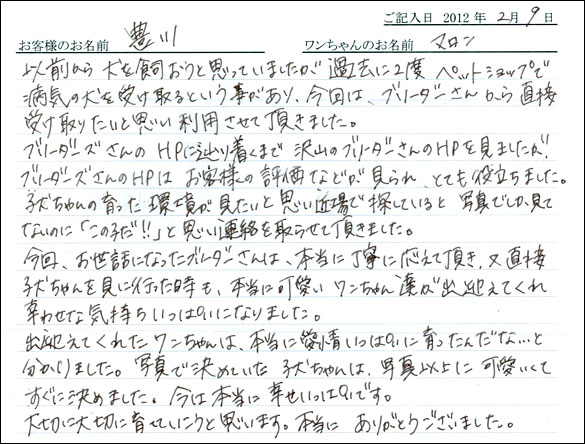 ご記入日 2012年 2月 9日
お客様のお名前 豊川 ワンちゃんのお名前 マロン
以前から犬を飼おうと思っていましたが過去に2度ペットショップで
病気の犬を受け取るという事があり、今回は、ブリーダーさんから直接
受け取りたいと思い利用させて頂きました。
ブリーダーズさんのHPに辿り着くまで沢山のブリーダーさんのHPを見ましたが、
ブリーダーズさんのHPはお客様の評価などが見られ、とても役立ちました。
子犬ちゃんの育った環境が見たいと思い近場で探していると写真でしか見て
ないのに「この子だ!!」と思い連絡を取らせて頂きました。
今回、お世話になったブリーダーさんは、本当に丁寧に応えて頂き、又直接
子犬ちゃんを見に行った時も、本当に可愛いワンちゃん達が出迎えてくれ
幸わせな気持ちいっぱいになりました。
出迎えてくれたワンちゃんは、本当に愛情いっぱいに育ったんだな…と
分かりました。写真で決めていた子犬ちゃんは、写真以上に可愛いくて
すぐに決めました。今は本当に幸せいっぱいです。
大切に大切に育せていこうと思います。本当にありがとうございました。